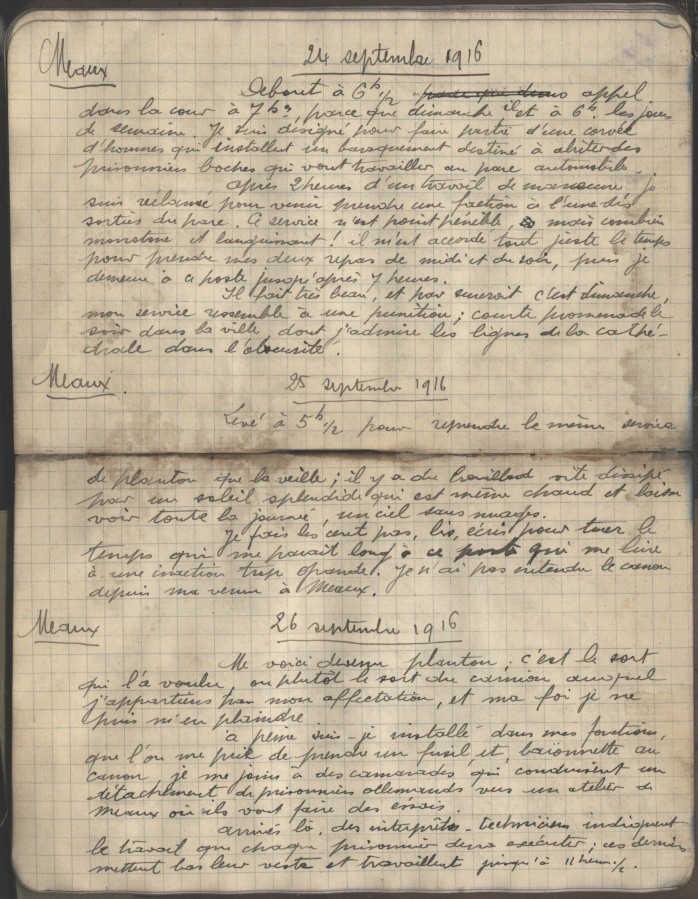 Meaux 24 septembre 1916
Debout à 6h 1/2 appel
dans la cour à 7hrs, parce que dimanche et à 6h les jours
de semaine. Je suis désigné pour faire partie d'une corvée
d'hommes qui installent un baraquement destiné à abriter des
prisonniers boches qui vont travailler au parc automobile.
après 2 heures d'un travail de manoeuvre, je
suis réclamé pour venir prendre une faction à l'une des
sorties du parc. Ce service n'est point pénible, mais combien
monotone et languissant ! il m'est accordé tout juste le temps
pour prendre mes deux repas de midi et du soir, puis je
demeure à ce poste jusqu'après 7 heures.
Il fait très beau, et par surcroit c'est dimanche,
mon service ressemble à une punition ; courte promenade le
soir dans la ville, dont j'admire les lignes de la cathé-
drale dans l'obscurité.
Meaux. 25 septembre 1916
Levé à 5h 1/2 pour reprendre le même service
de planton que la veille ; il y a du brouillard vite dissipé
par un soleil splendide qui est même chaud et laisse
voir toute la journée, un ciel sans nuages.
Je fais les cent pas, lis, écris pour tuer le
temps qui me parait long à ce poste qui me livre
à une inaction trop grande. Je n'ai pas entendu le canon
depuis ma venue à Meaux.
Meaux 26 septembre 1916
Me voici devenu planton ; c'est le sort
qui l'a voulu, ou plutôt le sort du camion auquel
j'appartiens par mon affectation, et ma foi je ne
puis m'en plaindre.
à peine suis-je installé dans mes fonctions,
que l'on me prie de prendre un fusil, et, baïonnette au
canon, je me joins à des camarades qui conduisent un
détachement de prisonniers allemands vers un atelier de
Meaux où ils vont faire des essais.
arrivés là, des interprètes-techniciens indiquent
le travail que chaque prisonnier devra exécuter ; ces derniers
mettent bas leur veste et travaillent jusqu'à 11 heures 1/2.